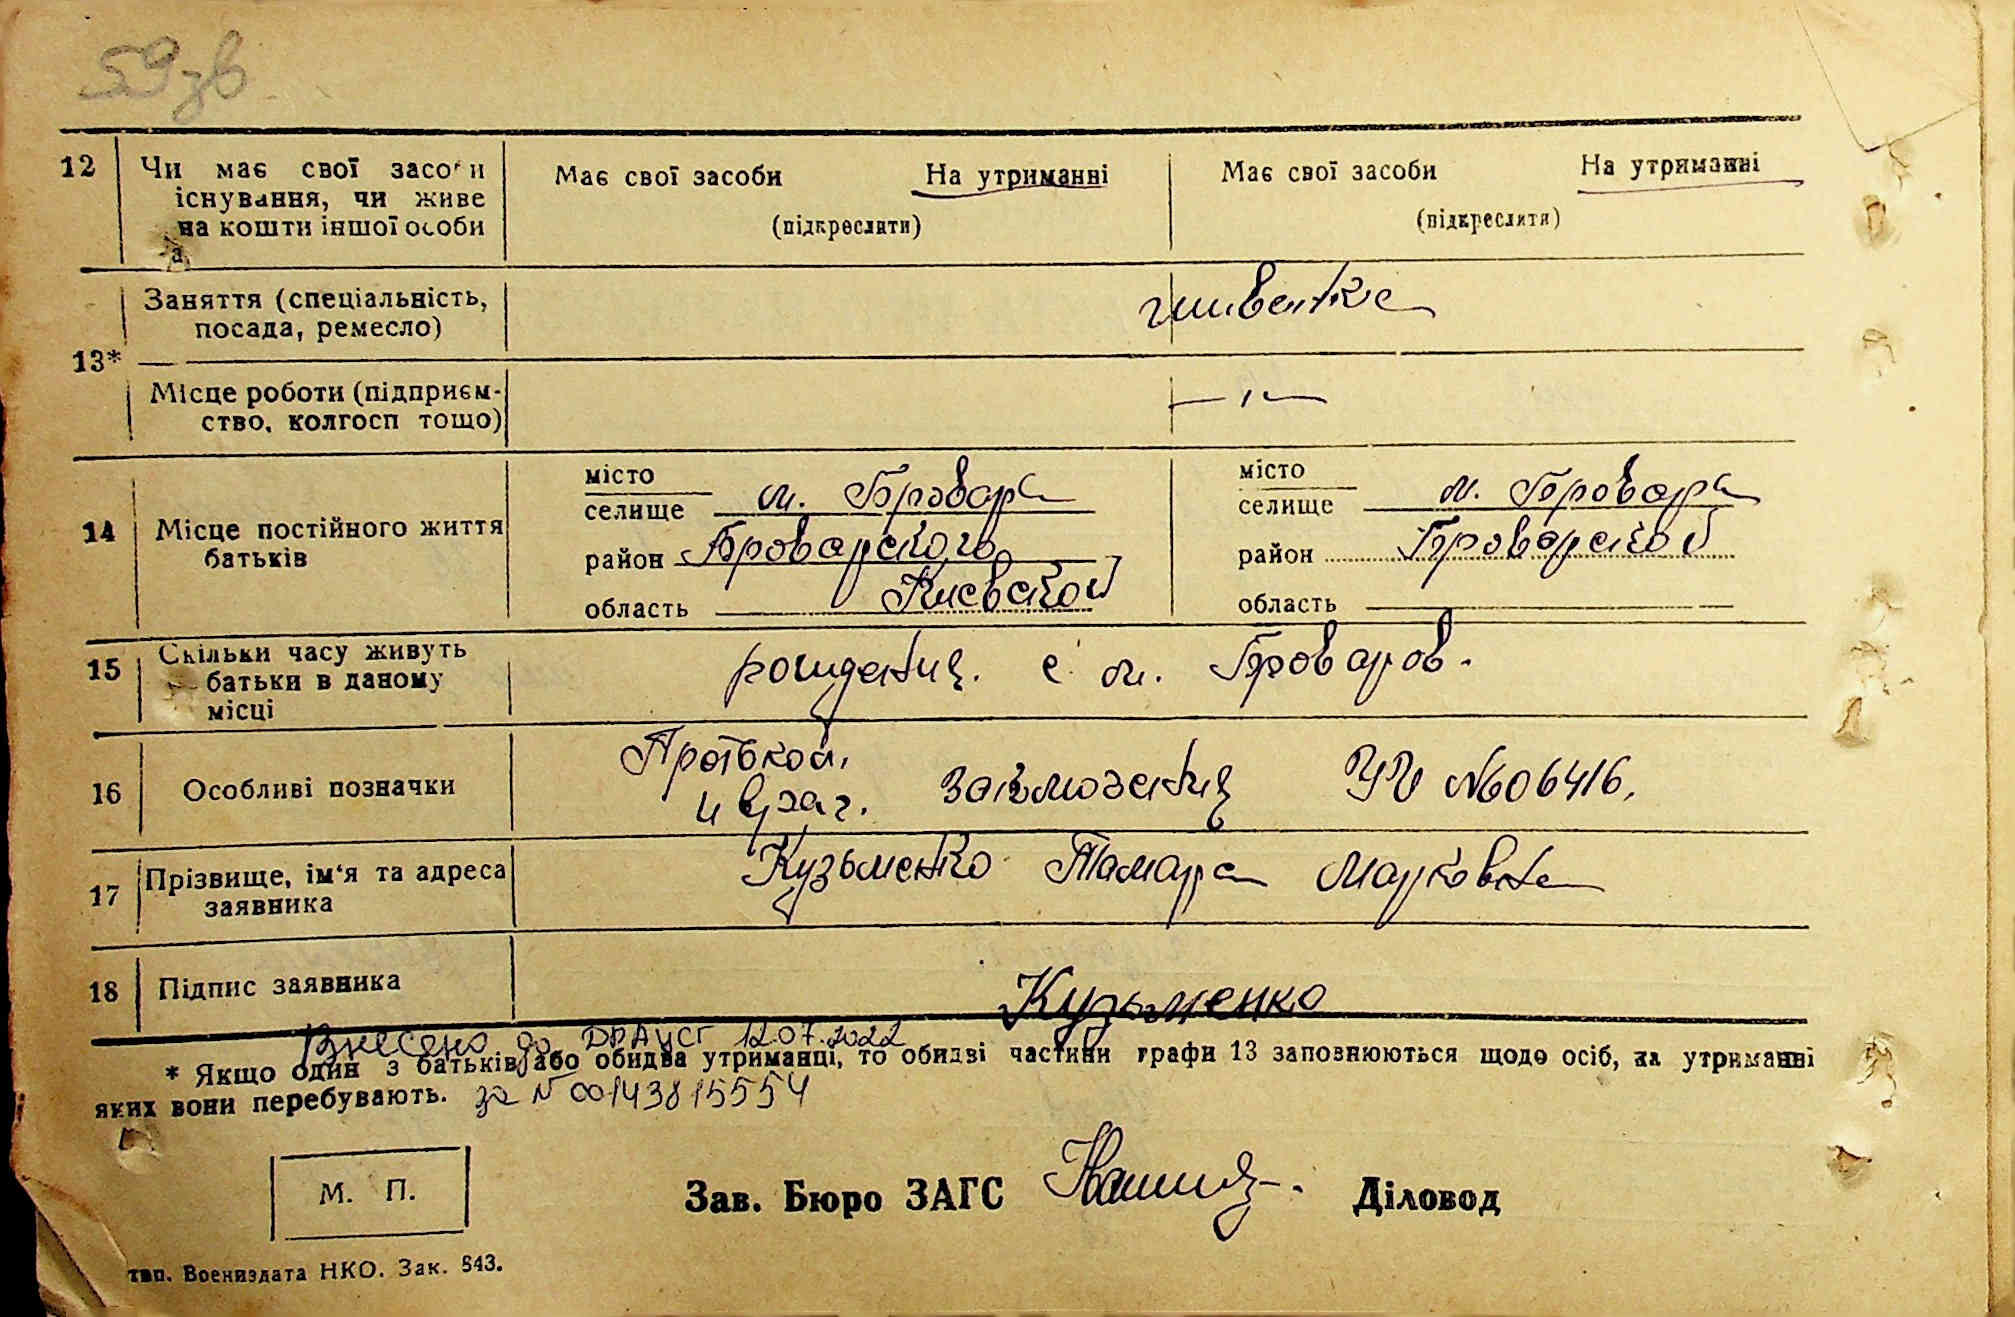 59зв
12 Чи має свої засоби Має свої засоби На утриманні Має свої засоби На утриманні
існування, чи живе (підкреслити) (підкреслити)
на кошти іншої особи
Заняття (спеціальність,
посада, ремесло)
13*
Місце роботи (підприєм-
ство, колгосп тощо) — " —
місто місто
селище м. Бровара селище м. Бровара
14 Місце постійного життя
батьків
район Броварского район Броварской
область Киевской область
15 Скільки часу живуть
батьки в даному
місці
рождения. с м. Броваров.
16 Особливі позначки
и врач. заключения № 606416.
17 Прізвище, ім'я та адреса
заявника
Кузьменко Тамара Марковна
18 Підпис заявника Кузьменко
Внесено до ДРАЦСГ 12.07.2022
* Якщо один з батьків або обидва утриманці, то обидві частини графи 13 заповнюються щодо осіб, на утриманні
яких вони перебувають. за № 00143815554
М. П.
Зав. Бюро ЗАГС Діловод
тип. Воениздата НКО. Зак. 843.